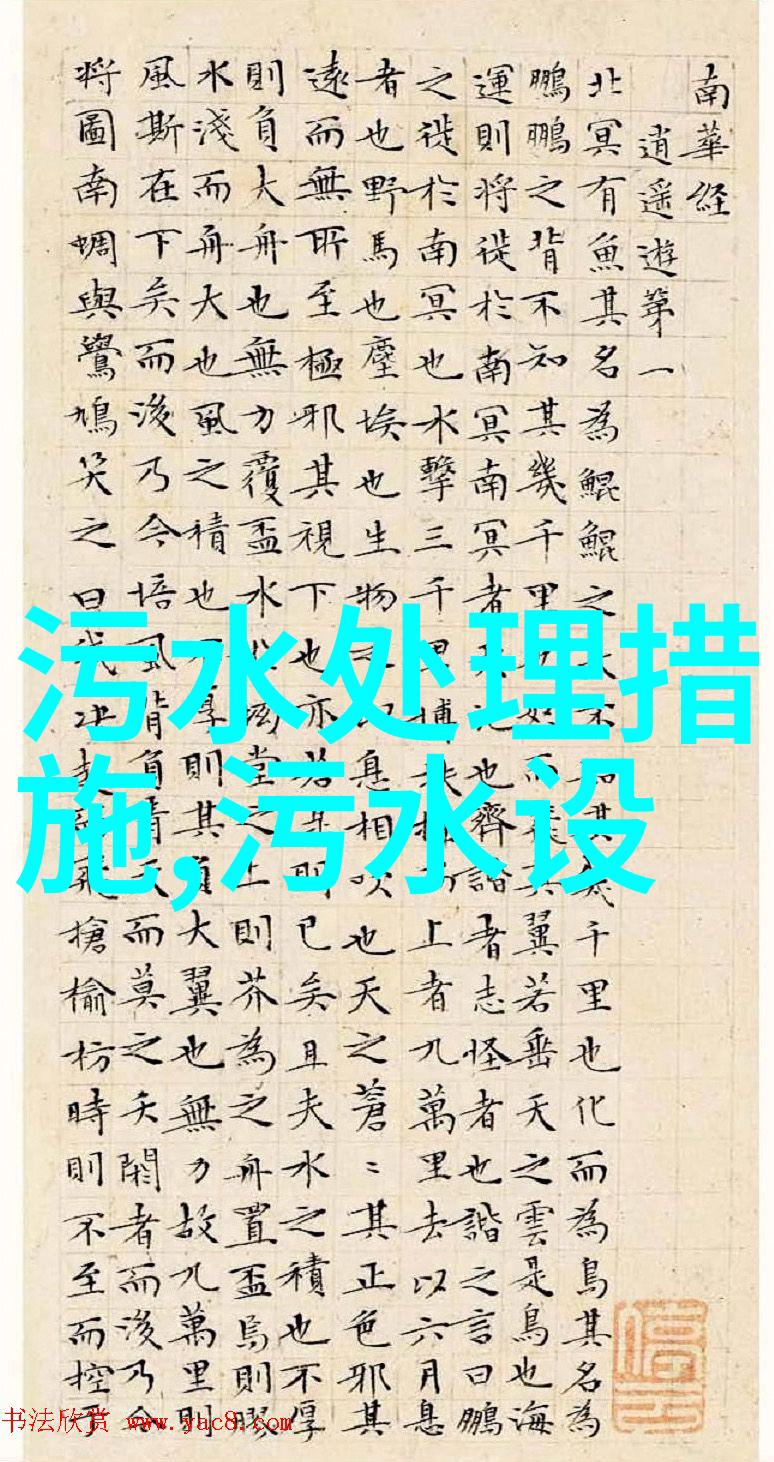 南華経
逍遥遊第一
北冥有魚其名為鯤鯤之大不知其幾千里也化而為鳥其名為
鵬鵬之背不知其幾千里也怒而飛其翼若垂天之雲是鳥也海
運則将徙於南冥南冥者天池也齊諧者志怪者也諧之言曰鵬
之徙於南冥也水擊三千里摶扶摇而上者九萬里去以六月息
者也野馬也塵埃也生物之以息相吹也天之蒼〻其正色邪其
遠而無所至極邪其視下也亦若是則已矣且夫水之積也不厚
則負大舟也無力覆盃水於坳堂之上則芥為之舟置盃焉則膠
水淺而舟大也風之積也不厚則其負大翼也無力故九萬里則
風斯在下矣而後乃今培風背負青天而莫之夭閼者而後乃今
将圖南蜩與鷽鳩笑之曰我决起而飛搶榆枋時則不至而控於
污水处理措
施,污水设
书法欣赏 www.yac8.com